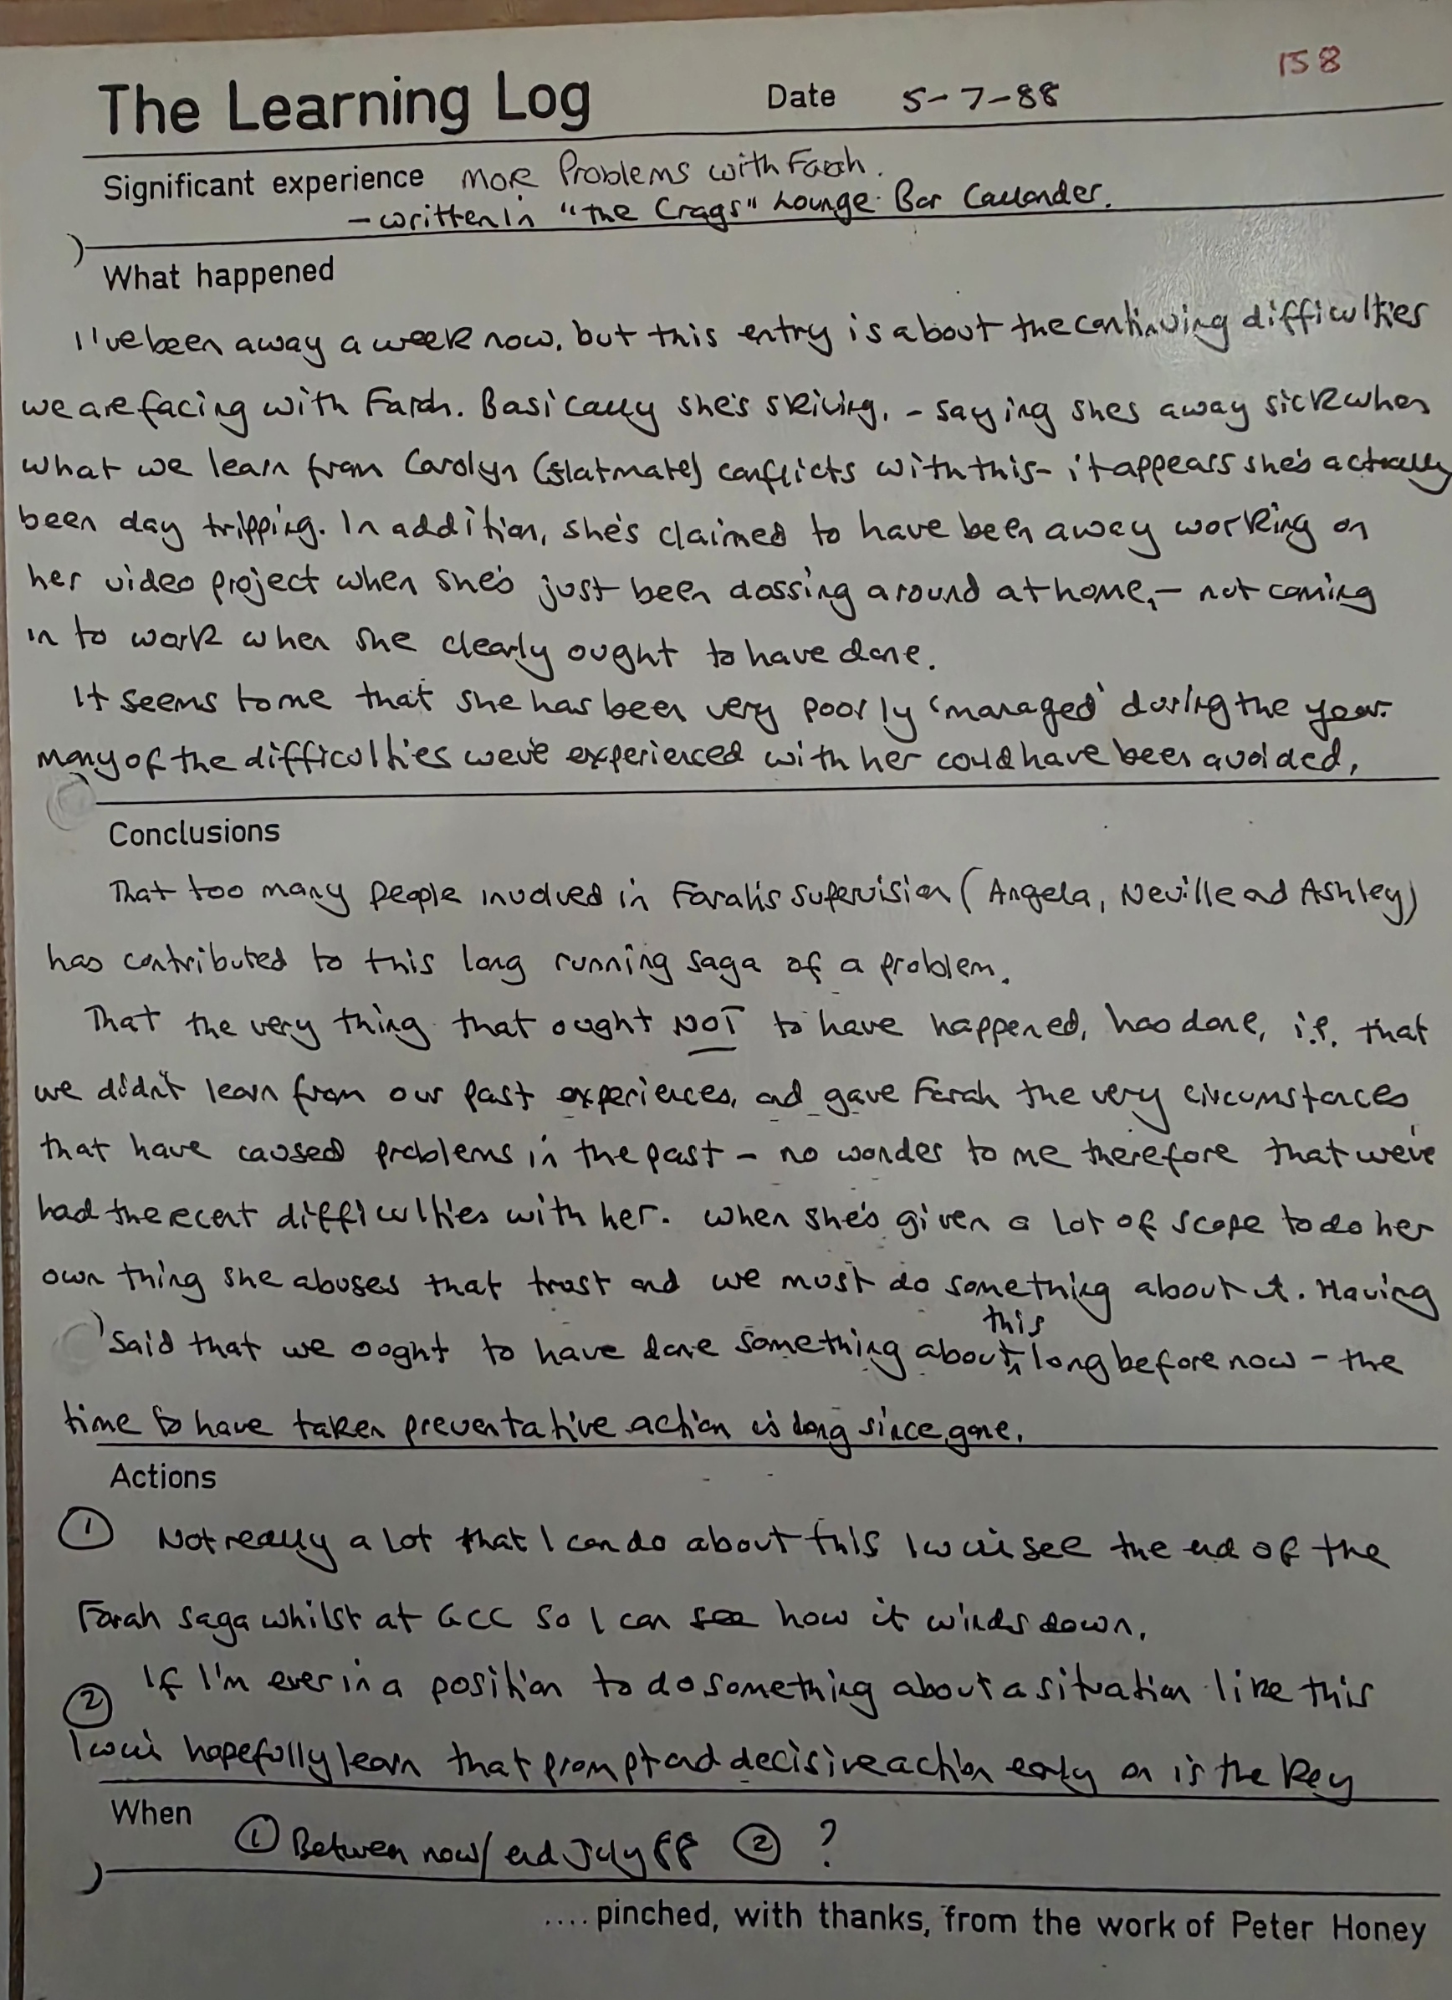 158
The Learning Log Date 5-7-88
Significant experience More Problems with Farah.
- written in "the Crags" Lounge Bar Callander.
What happened
I've been away a week now, but this entry is about the continuing difficulties
we are facing with Farah. Basically she's skiving, - saying shes away sick when
what we learn from Carolyn (flatmate) conflicts with this - it appears she's actually
been day tripping. In addition, she's claimed to have been away working on
her video project when she's just been dossing around at home, - not coming
in to work when she clearly ought to have done.
It seems to me that she has been very poorly 'managed' during the year.
Many of the difficulties we've experienced with her could have been avoided.
Conclusions
That too many people involved in Farah's supervision (Angela, Neville and Ashley)
has contributed to this long running saga of a problem.
That the very thing that ought NOT to have happened, has done, i.e. that
we didn't learn from our past experiences, and gave Farah the very circumstances
that have caused problems in the past - no wonder to me therefore that we've
had the recent difficulties with her. When she's given a lot of scope to do her
own thing she abuses that trust and we must do something about it. Having
said that we ought to have done something about this long before now - the
time to have taken preventative action is long since gone.
Actions
① Not really a lot that I can do about this I will see the end of the
Farah saga whilst at GCC so I can see how it winds down.
② If I'm ever in a position to do something about a situation like this
I will hopefully learn that prompt and decisive action early on is the key
When ① Between now/end July 88 ② ?
.... pinched, with thanks, from the work of Peter Honey